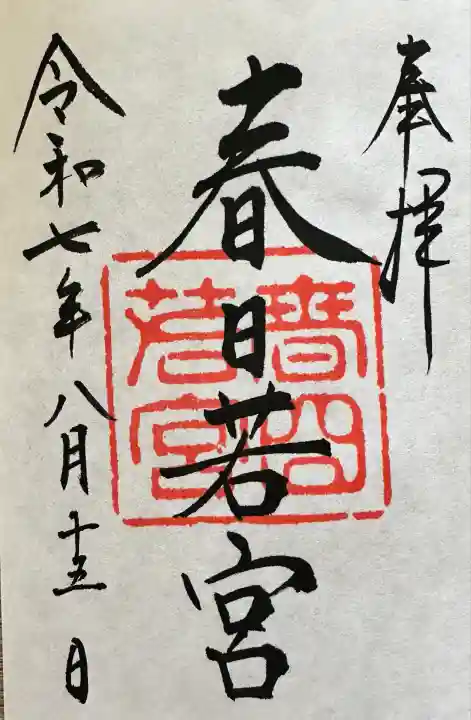 奉拝
春日若宮
春日
若宮
令和七年八月十五日